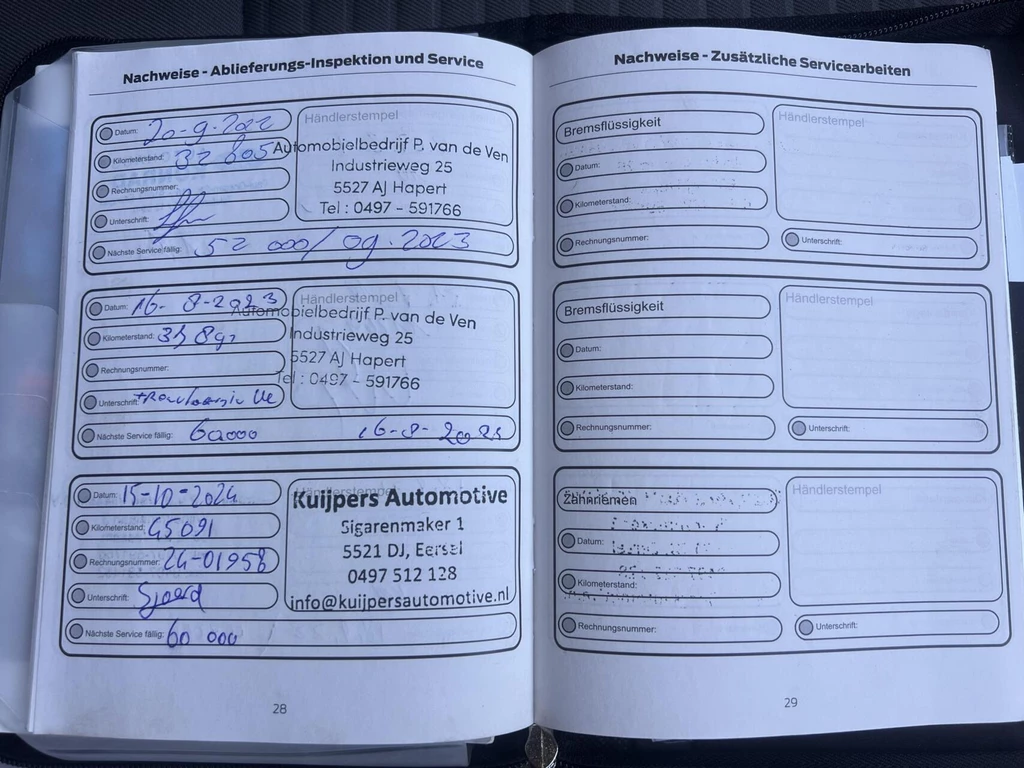 Nachweise - Ablieferungs-Inspektion und Service
Datum: 20-9-2022
Kilometerstand: 32 805
Rechnungsnummer:
Unterschrift:
Nächste Service fällig: 52 000/09.2023
Händlerstempel
Automobielbedrijf P. van de Ven
Industrieweg 25
5527 AJ Hapert
Tel : 0497 - 591766
Datum: 16-8-2023
Kilometerstand:
Rechnungsnummer:
Unterschrift:
Nächste Service fällig: 60000 16-8-
Händlerstempel
Automobielbedrijf P. van de Ven
Industrieweg 25
5527 AJ Hapert
Tel : 0497 - 591766
Datum: 15-10-2024
Kilometerstand: 45091
Rechnungsnummer: 24-01958
Unterschrift: Sjoerd
Nächste Service fällig: 60 000
Händlerstempel
Kuijpers Automotive
Sigarenmaker 1
5521 DJ, Eersel
0497 512 128
info@kuijpersautomotive.nl
28
Nachweise - Zusätzliche Servicearbeiten
Bremsflüssigkeit
Datum:
Kilometerstand:
Rechnungsnummer:
Händlerstempel
Unterschrift:
Bremsflüssigkeit
Datum:
Kilometerstand:
Rechnungsnummer:
Händlerstempel
Unterschrift:
Zahnriemen
Datum:
Kilometerstand:
Rechnungsnummer:
Händlerstempel
Unterschrift:
29